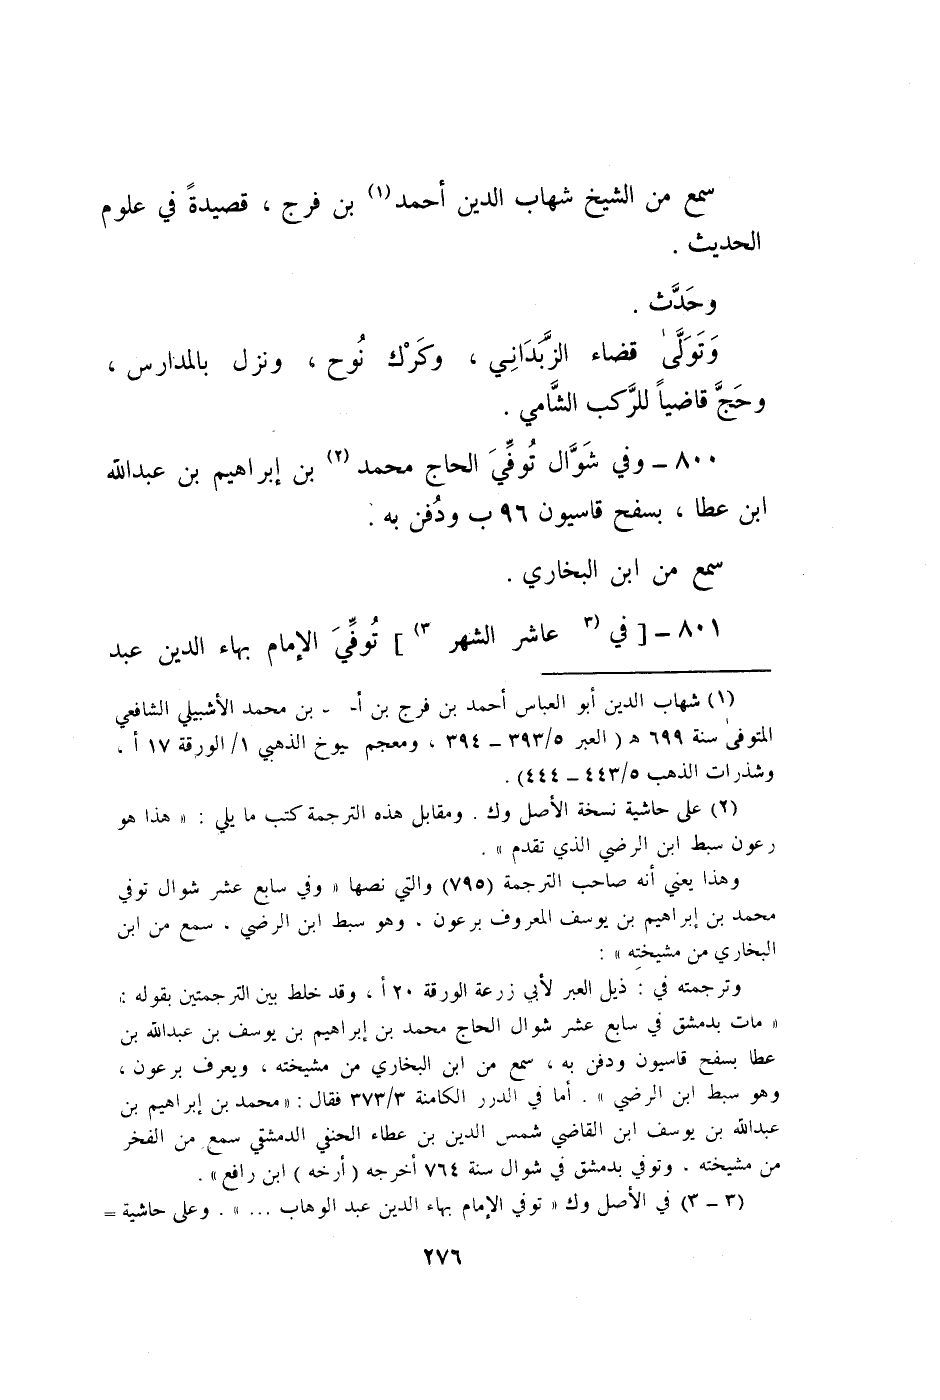 سمع من الشيخ شهاب الدين أحمد(١) بن فرج ، قصيدةً في علوم
الحديث .
وحَدَّث .
وَتَوَلَّىٰ قضاء الزَّبَدَانِي ، وكَرْك نُوح ، ونزل بالمدارس ،
وحَجَّ قاضياً للرَّكب الشَّامي .
٨٠٠ ـ وفي شَوَّال تُوفِّيَ الحاج محمد(٢) بن إبراهيم بن عبدالله
ابن عطا ، بسفح قاسيون ٩٦ ب ودُفن به .
سمع من ابن البخاري .
٨٠١ ـ [ في(٣ عاشر الشهر ٣) ] تُوفِّيَ الإمام بهاء الدين عبد
(١) شهاب الدين أبو العباس أحمد بن فرج بن أ- - بن محمد الأشبيلي الشافعي
المتوفىٰ سنة ٦٩٩ هـ ( العبر ٣٩٣/٥ ـ ٣٩٤ ، ومعجم يوخ الذهبي ١/ الورقة ١٧ أ .
وشذرات الذهب ٤٤٣/٥ ـ ٤٤٤) .
(٢) على حاشية نسخة الأصل وك . ومقابل هذه الترجمة كتب ما يلي : « هذا هو
رعون سبط ابن الرضي الذي تقدم » .
وهذا يعني أنه صاحب الترجمة (٧٩٥) والتي نصها « وفي سابع عشر شوال توفي
محمد بن إبراهيم بن يوسف المعروف برعون . وهو سبط ابن الرضي . سمع من ابن
البخاري من مشيخته » :
وترجمته في : ذيل العبر لأبي زرعة الورقة ٢٠ أ ، وقد خلط بين الترجمتين بقوله :
« مات بدمشق في سابع عشر شوال الحاج محمد بن إبراهيم بن يوسف بن عبدالله بن
عطا بسفح قاسيون ودفن به ، سمع من ابن البخاري من مشيخته ، ويعرف برعون ،
وهو سبط ابن الرضي » . أما في الدرر الكامنة ٣٧٣/٣ فقال : « محمد بن إبراهيم بن
عبدالله بن يوسف ابن القاضي شمس الدين بن عطاء الحنفي الدمشقي سمع من الفخر
من مشيخته . وتوفي بدمشق في شوال سنة ٧٦٤ أخرجه ( أرخه ) ابن رافع » .
(٣ ـ ٣) في الأصل وك « توفي الإمام بهاء الدين عبد الوهاب ... » . وعلى حاشية =
٢٧٦